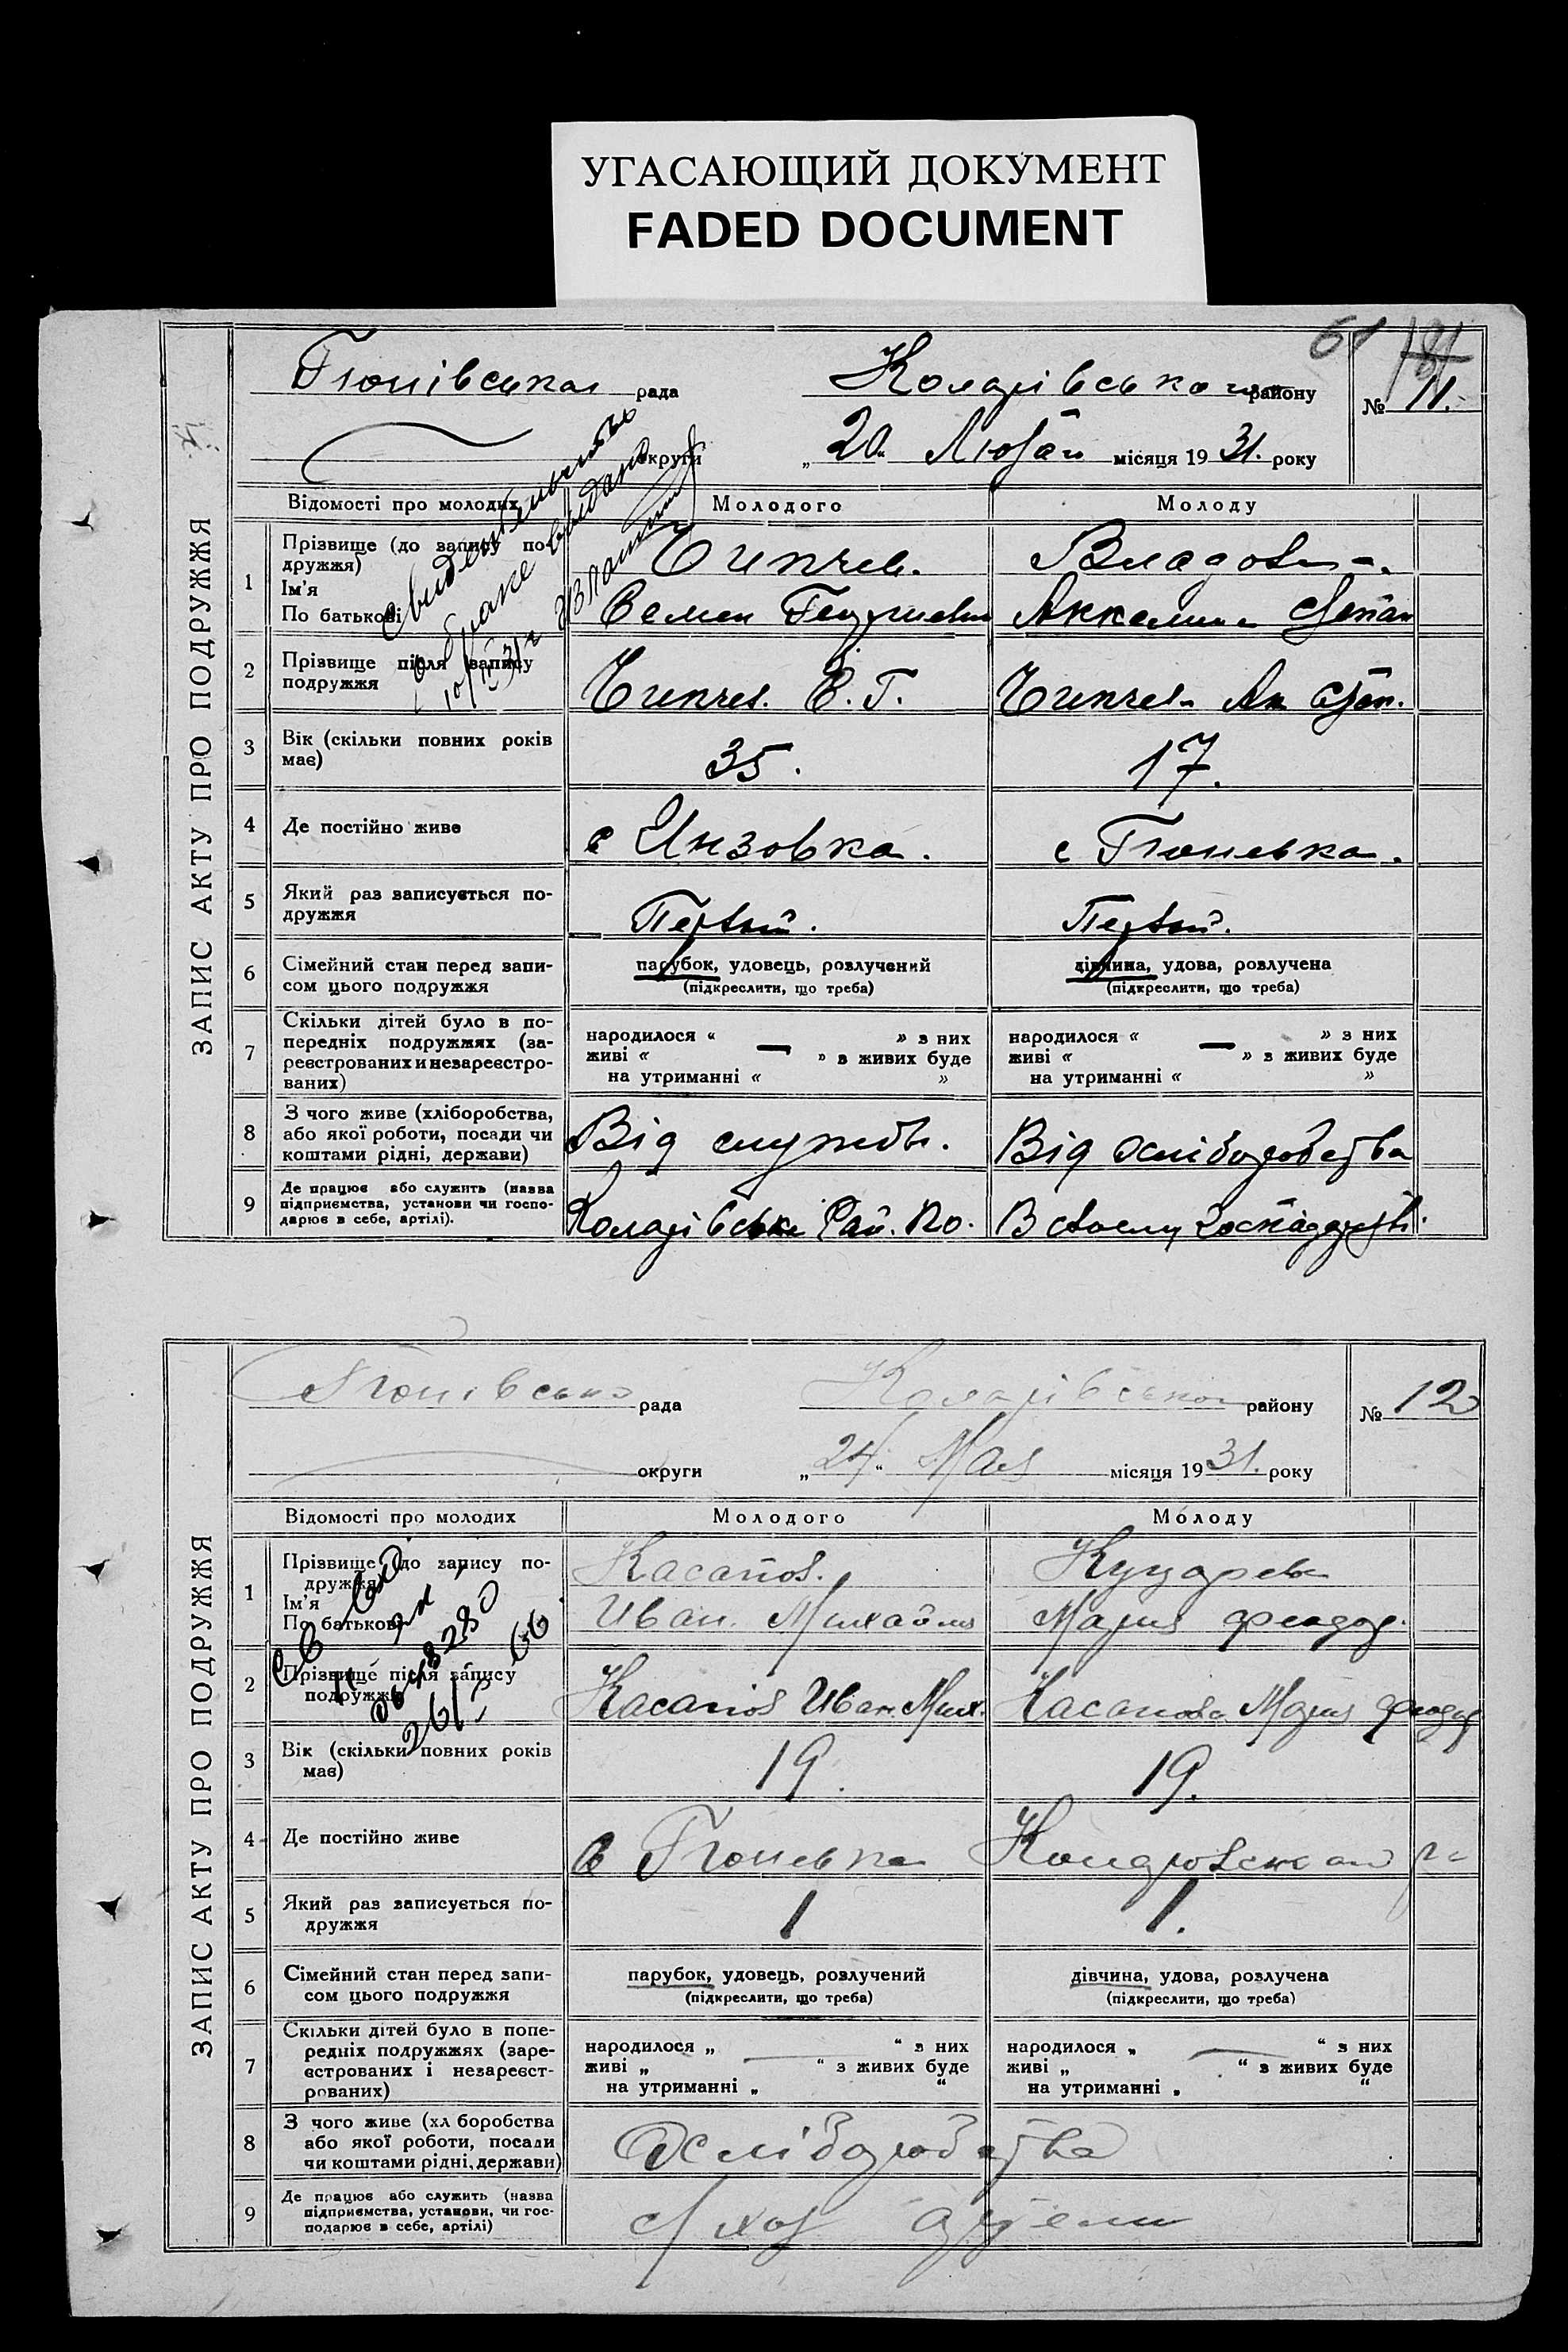 УГАСАЮЩИЙ ДОКУМЕНТ
FADED DOCUMENT
61
Гюнівська рада Коларівського району № 11.
округи „20“ Лютий місяця 1931. року
ЗАПИС АКТУ ПРО ПОДРУЖЖЯ
Відомості про молодих Молодого Молоду
свидетельство
о браке выдано
1 Прізвище (до запису подружжя)
Ім'я
По батькові
Владова.
Семен Георгиевич
Степан
2 Прізвище після запису
подружжя
3 Вік (скільки повних років
має)
35. 17.
4 Де постійно живе с Инзовка. с Гюневка.
5 Який раз записується по-
дружжя
Первый. Первый.
6 Сімейний стан перед запи-
сом цього подружжя
парубок, удовець, розлучений дівчина, удова, розлучена
(підкреслити, що треба) (підкреслити, що треба)
7 Скільки дітей було в по-
передніх подружжях (за-
реєстрованих и незареєстро-
ваних)
народилося « » з них народилося « » з них
живі « — » з живих буде живі « — » з живих буде
на утриманні « » на утриманні « »
8 З чого живе (хліборобства,
або якої роботи, посади чи
коштами рідні, держави)
Від служби. Від хліборобства
9 Де працює або служить (назва
підприємства, установи чи госпо-
дарює в себе, артілі).
Коларівське Рай. По. В своему господарстві.
Гюнівська рада Коларівського району № 12
округи „24“ Мая місяця 1931. року
ЗАПИС АКТУ ПРО ПОДРУЖЖЯ
Відомості про молодих Молодого Молоду
1 Прізвище (до запису по-
дружжя)
Ім'я
По батькові
Касапов. Куцарева
Иван. Михайлов Мария Феодор.
2 Прізвище після запису
подружжя
Касапов Иван Мих. Касапова Мария Феодор
3 Вік (скільки повних років
має)
19. 19.
4 Де постійно живе в Гюневка
5 Який раз записується по-
дружжя
1 1.
6 Сімейний стан перед запи-
сом цього подружжя
парубок, удовець, розлучений дівчина, удова, розлучена
(підкреслити, що треба) (підкреслити, що треба)
7 Скільки дітей було в попе-
редніх подружжях (заре-
єстрованих і незареєст-
рованих)
народилося „ “ з них народилося „ “ з них
живі „ “ з живих буде живі „ “ з живих буде
на утриманні „ “ на утриманні „ “
8 З чого живе (хл боробства
або якої роботи, посади
чи коштами рідні, держави)
Хліборобства
9 Де працює або служить (назва
підприємства, установи, чи гос-
подарює в себе, артілі)
с/хоз артели